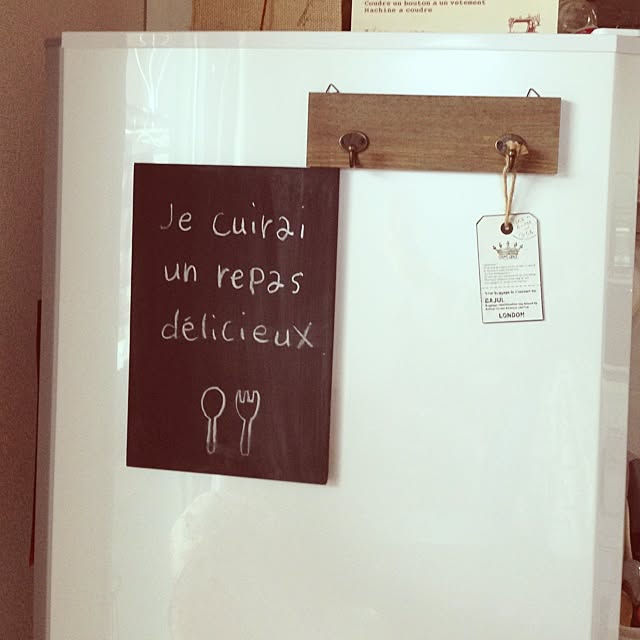 Coudre un bouton a un votement
Machine a coudre
Je cuirai
un repas
délicieux
LONDON